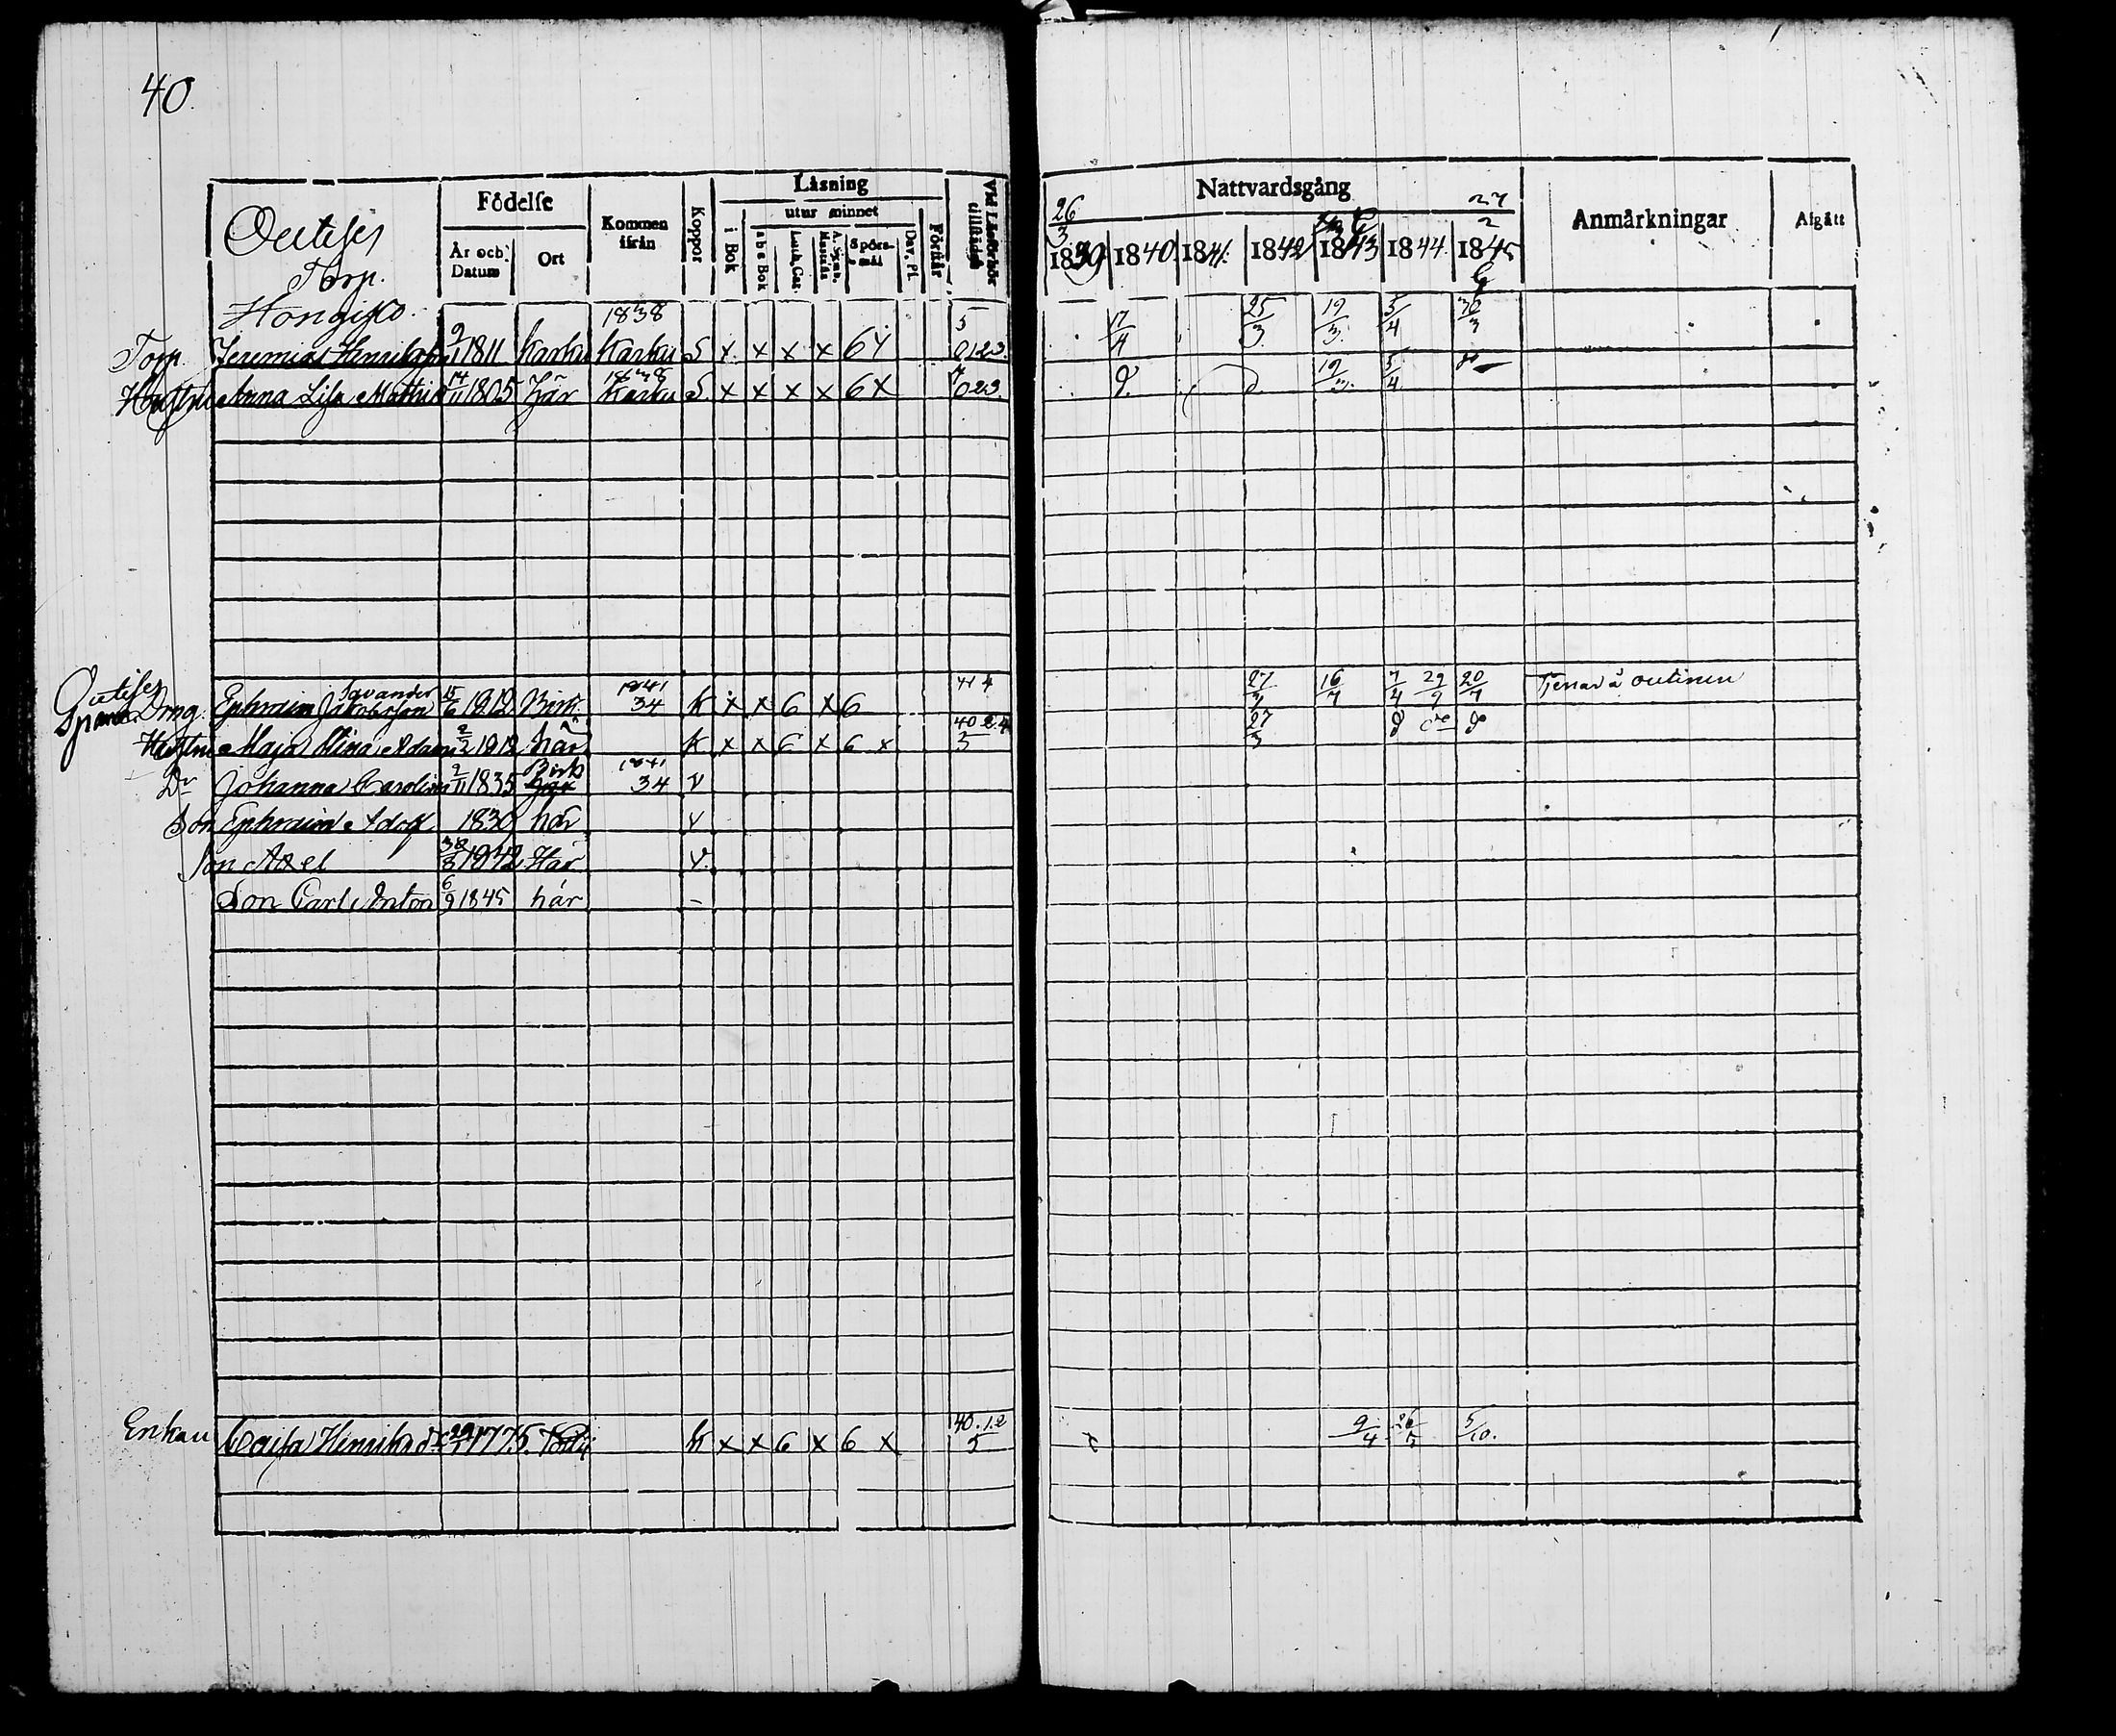 40.
Födelse
Kommen ifrån
Koppor
Läsning
i Bok
utur minnet
a b c Bok
Luth. Cat.
Spörs-mål
Dav. Pl.
Förstår
Vid Läsförhör tillstädes
År och Datum
Ort
Nattvardsgång
26/3 1839 1840 1841 1842 1843 1844 1845 27/2
Anmärkningar
Afgått
Outises
Torp.
Hongisto. 1838
Torp. Jeremias Henriksson 9/11 1811 Karku Karku S x x x x 6 5 0123. 17/4 25/3. 19/3. 5/4 30/3
Hustru Anna Lisa Mattsd 14/11 1805 Här 1838 Karku S. x x x x 6 x 023. d. d 19/3. 5/4
Outises
Drng. Ephraim Jakobsson Savander 15/6 1812 Birk. 1841 34 K x x 6 x 6 414 27/3 16/7 7/4 29/9 20/7 Tjenar å Outinen
Hustru Maja Stina Adamsd 1812 här K x x 6 x 6 x 40 2.4 3 27/3 d d
Dr Johanna Carolina 2/11 1835 Birk 1841 34 v
Son Ephraim Adolf 1830 här v
Son Axel 30/8 1842 Här v.
Son Carl Anton 6/9 1845 här -
Enkan Caisa Henriksdr 1775. K x x 6 x 6 x 40.12 5 9/4 26/5 5/10.